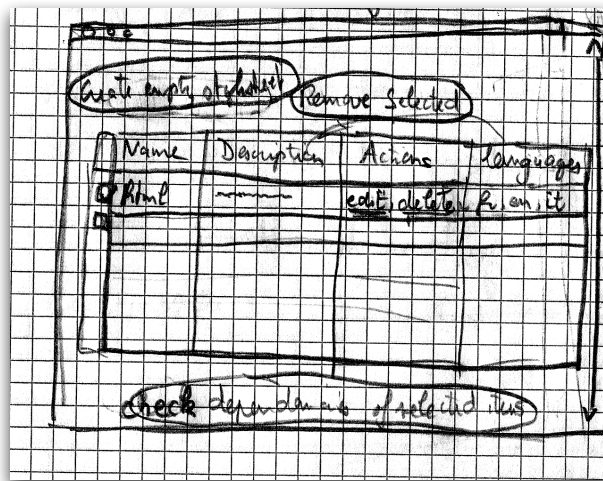 Create empty stylesheet Remove Selected
Name Description Actions languages
html edit, delete, fr, en, it
check dependencies of selected items